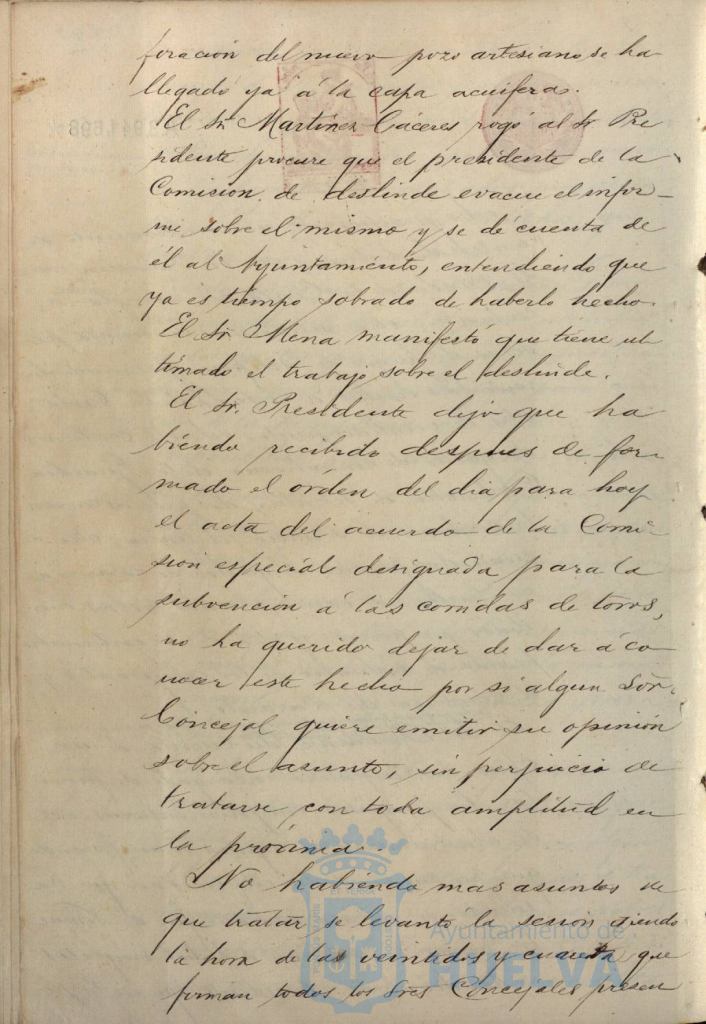 foracion del nuevo pozo artesiano se ha
llegado ya á la capa acuifera.
El Sr. Martinez Cáceres rogó al Sr. Pre
sidente procure que el presidente de la
Comision de deslinde evacue el infor-
me sobre el mismo y se dé cuenta de
él al Ayuntamiento, entendiendo que
ya es tiempo sobrado de haberlo hecho.
El Sr. Mena manifestó que tiene ul
timado el trabajo sobre el deslinde.
El Sr. Presidente dijo que ha
biendo recibido despues de for-
mado el órden del dia para hoy
el acta del acuerdo de la Comi-
sion especial designada para la
subvención á las corridas de toros,
no ha querido dejar de dar á co-
nocer este hecho por si algun Sór.
Concejal quiere emitir su opinión
sobre el asunto, sin perjuicio de
tratarse con toda amplitud en
la próxima.
No habiendo mas asuntos de
que tratar se levantó la sesion, siendo
la hora de las veintidos y cuarto que
firman todos los Sres Concejales presen
Ayuntamiento de
HUELVA